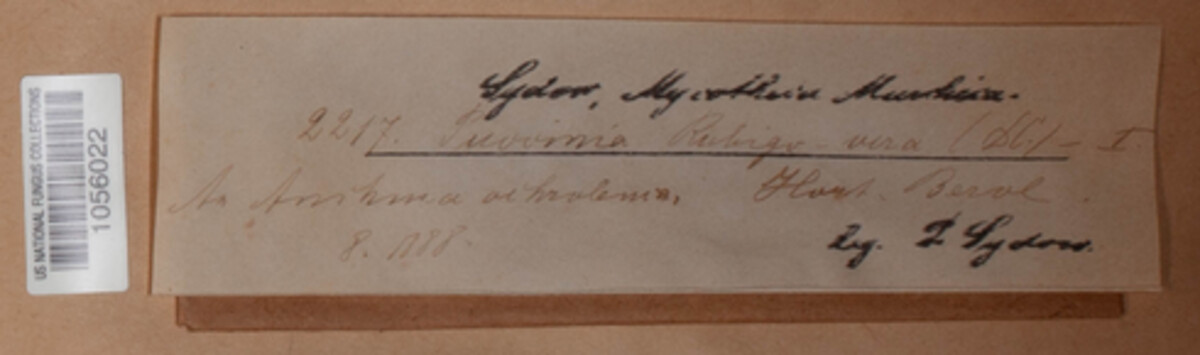 US NATIONAL FUNGUS COLLECTIONS
1056022
Sydow, Mycotheca Marchica.
2217. Puccinia Rubigo-vera (DC.) – I.
An Anchusa ochroleuca. Hort. Berol.
8. 1888.
leg. P. Sydow.